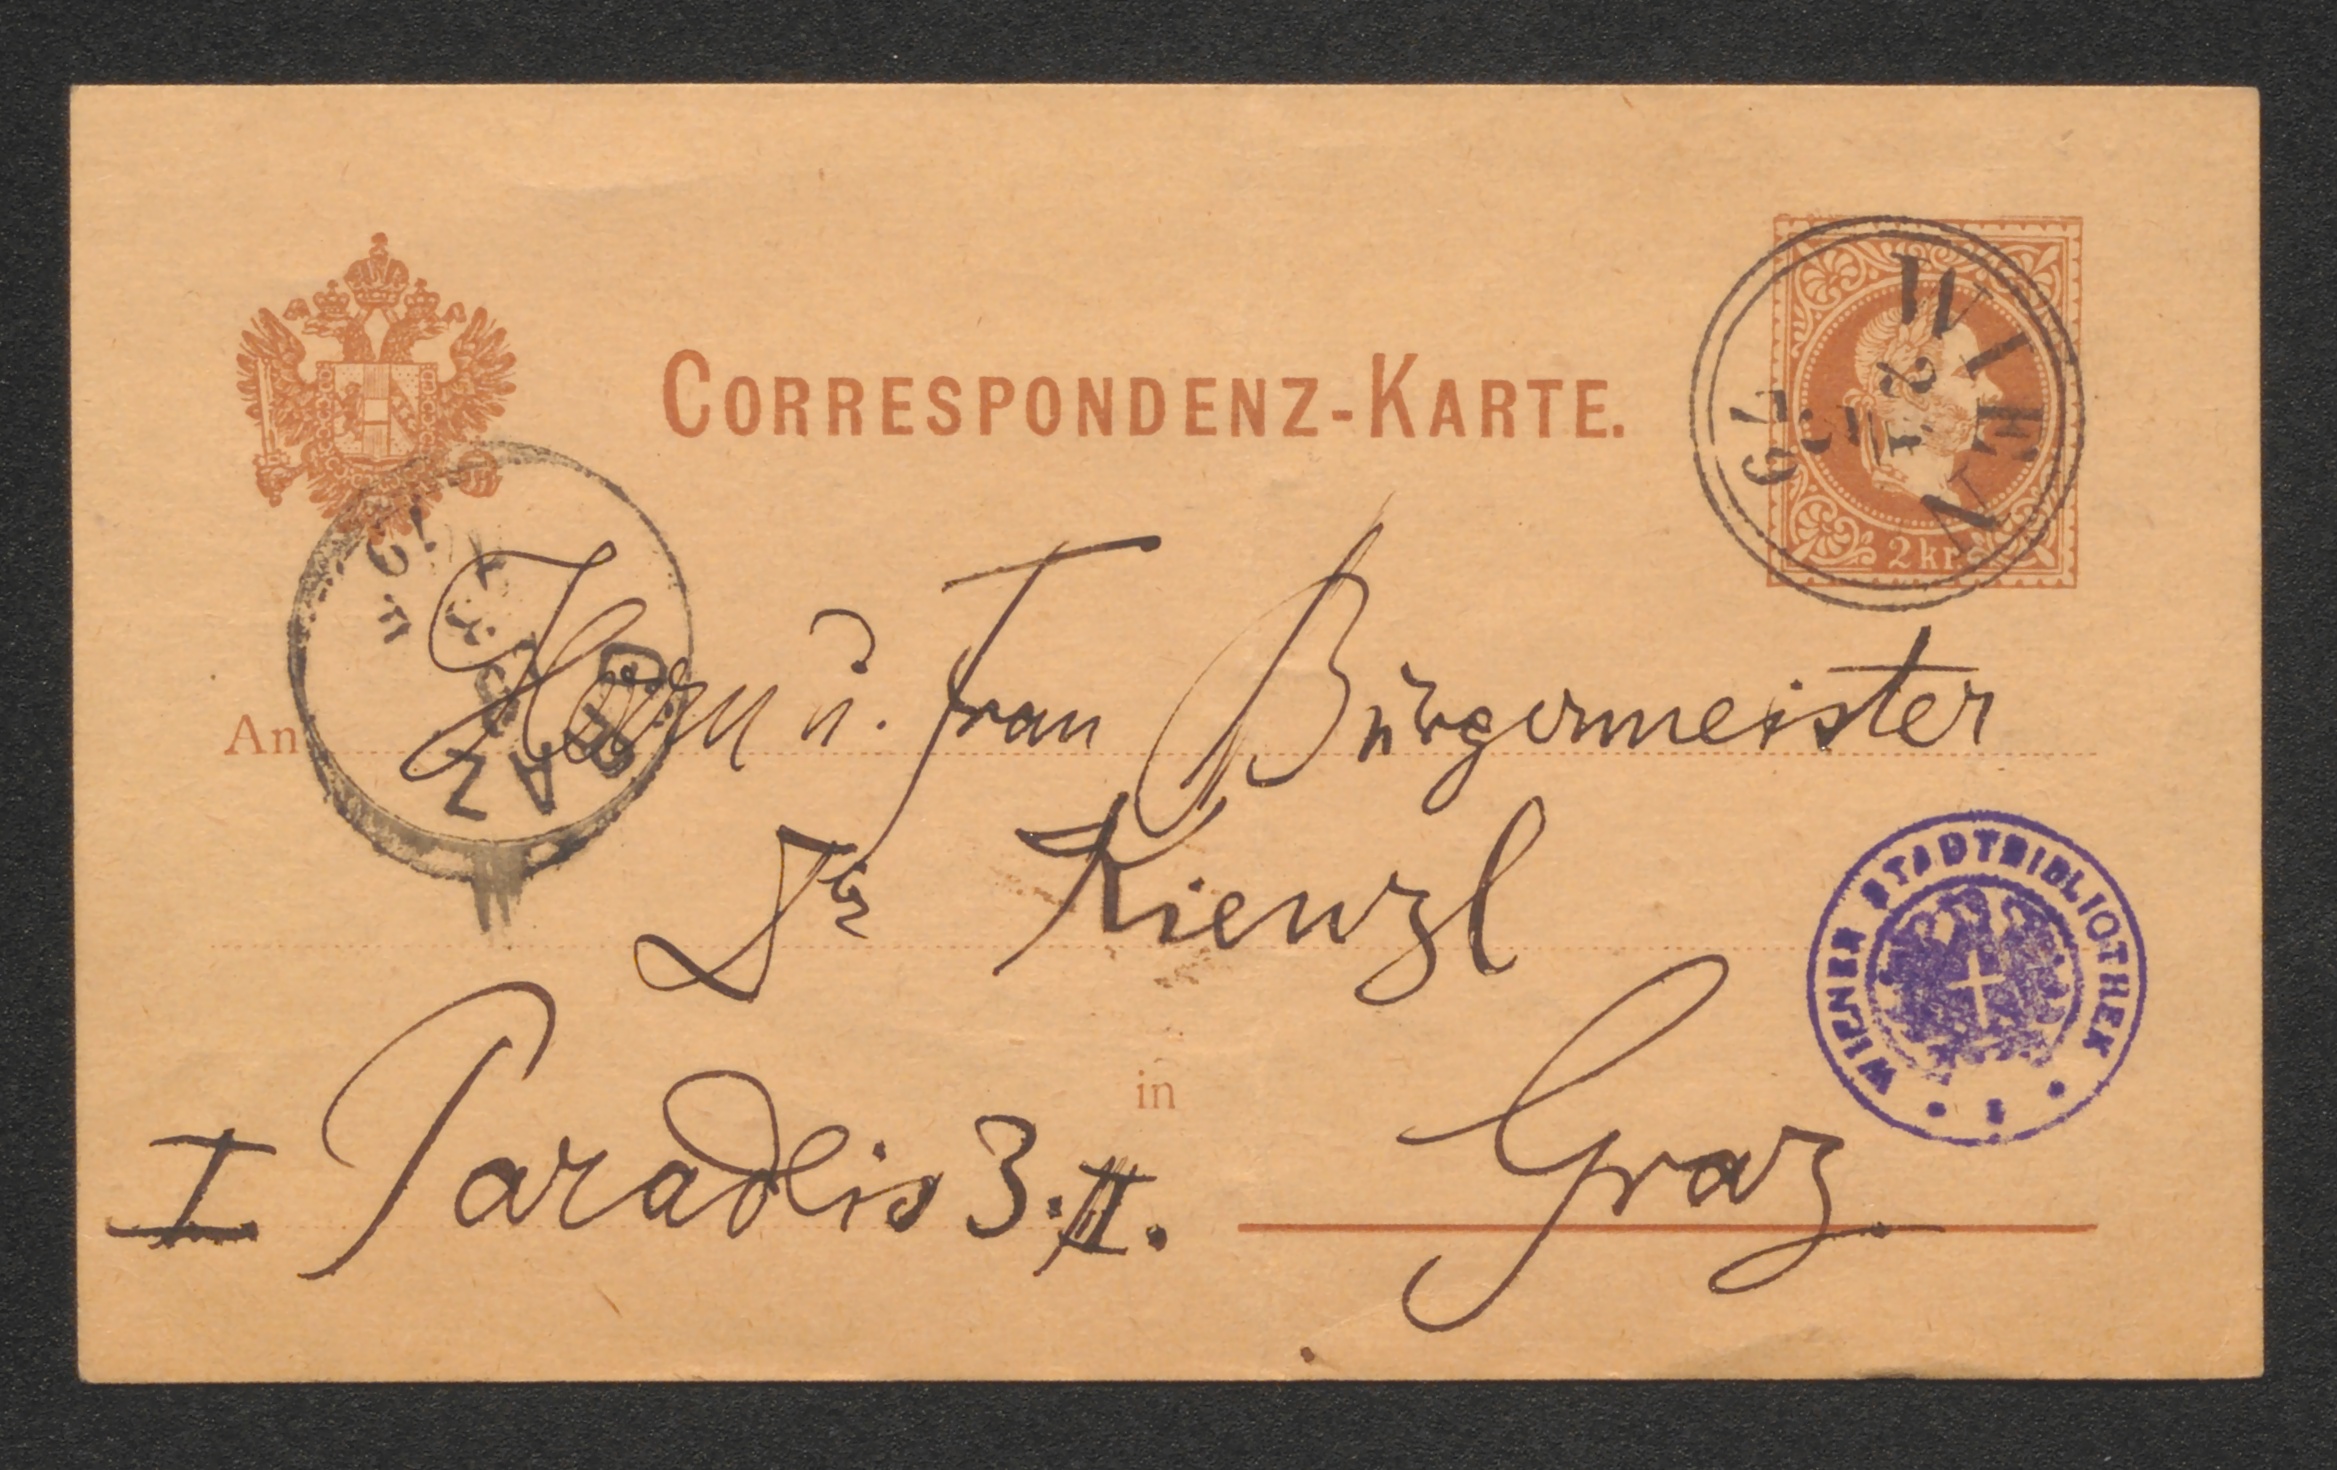 CORRESPONDENZ-KARTE.
WIEN
2
79
2 kr.
GRAZ
An Herrn u. Frau Bürgermeister
Dr Kienzl
WIENER STADTBIBLIOTHEK
in
I Paradeis 3. II. Graz.